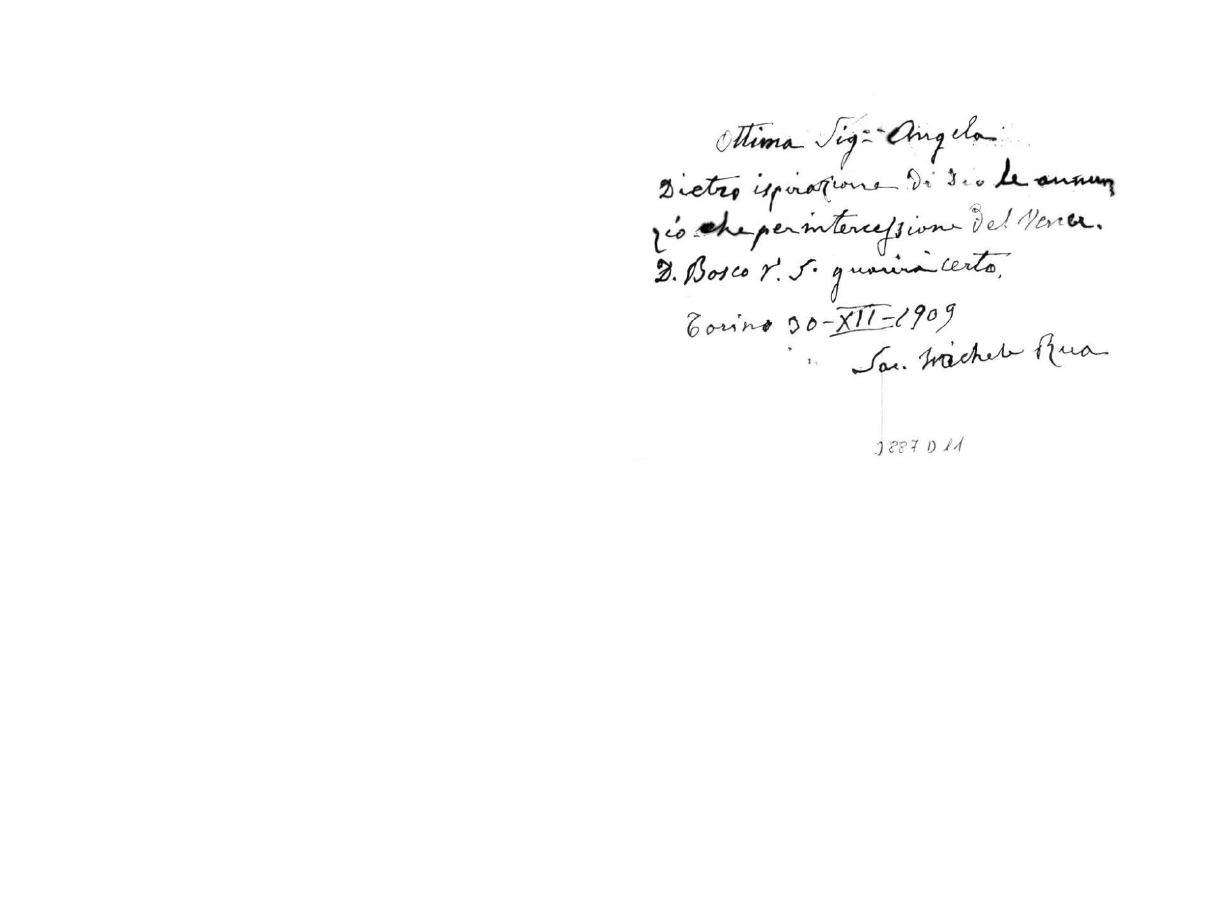 Ottima Sig.ª Angela
Dietro ispirazione di Dio le annun
zio che per intercessione del Vener.
D. Bosco V. S. guarirà certo.
Torino 30-XII-1909
Sac. Michele Rua
3887 D 11